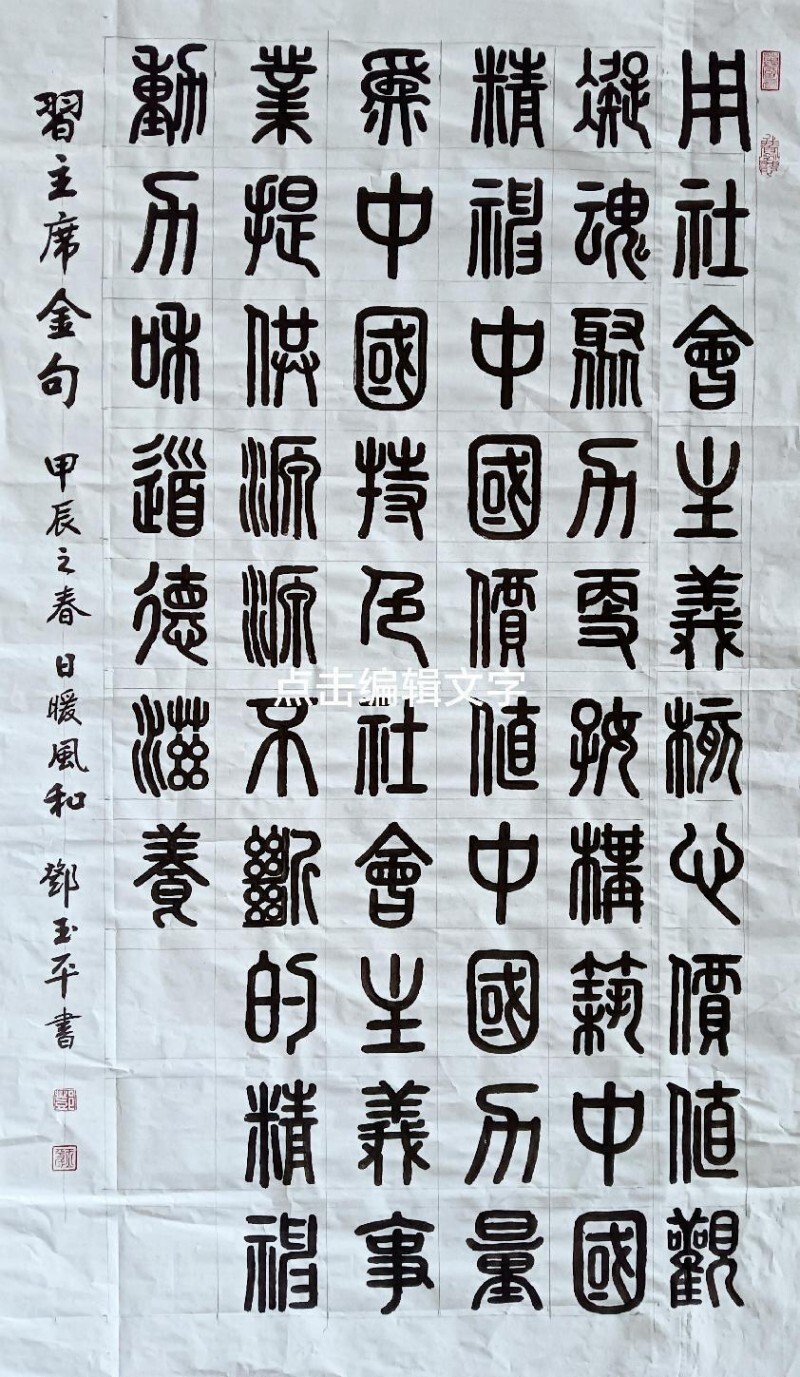 用社會主義核心價值觀
凝魂聚力更好構築中國
精神中國價值中國力量
為中國特色社會主義事
業提供源源不斷的精神
動力和道德滋養
習主席金句 甲辰之春 日暖風和 鄧玉平書
点击编辑文字